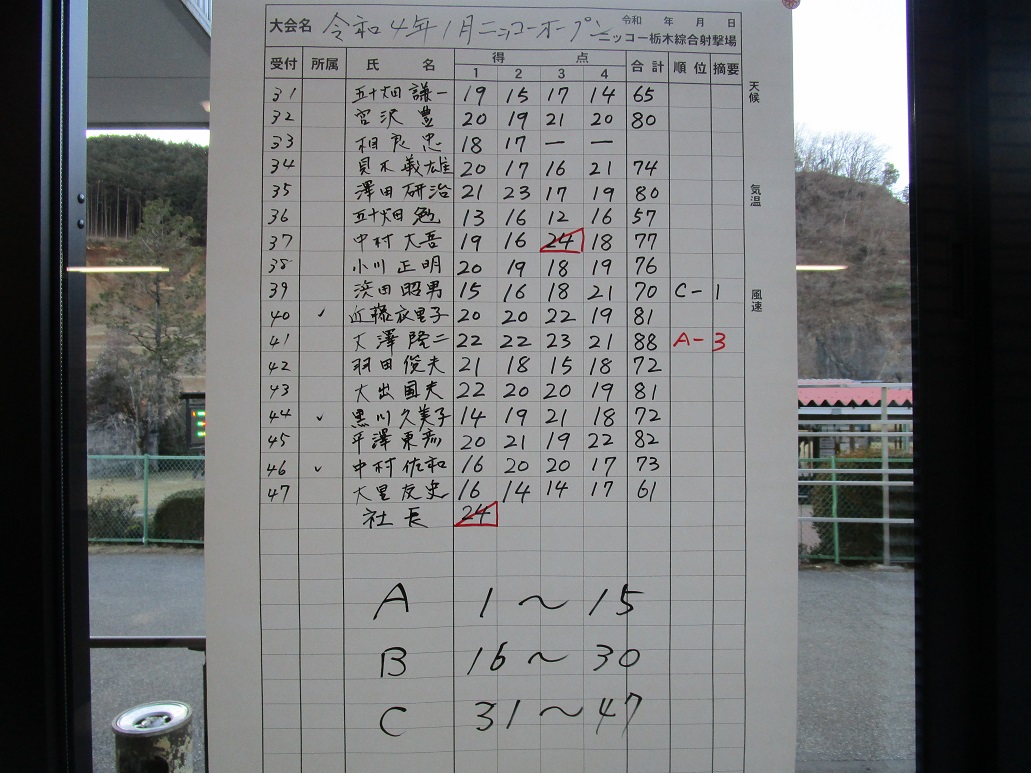 大会名 令和4年1月ニッコーオープン 令和 年 月 日
ニッコー栃木綜合射撃場
受付 所属 氏 名 得 点 合計 順位 摘要
1 2 3 4
天候
31 五十畑 謙一 19 15 17 14 65
32 宮沢 豊 20 19 21 20 80
33 相良 忠 18 17 ー ー
34 貝木 義雄 20 17 16 21 74
35 澤田 研治 21 23 17 19 80
気温
36 五十畑 勉 13 16 12 16 57
37 中村 大吾 19 16 24 18 77
38 小川 正明 20 19 18 19 76
39 浜田 昭男 15 16 18 21 70 C-1
風速
40 ✓ 近藤衣里子 20 20 22 19 81
41 大澤 隆二 22 22 23 21 88 A-3
42 羽田 俊夫 21 18 15 18 72
43 大出 国夫 22 20 20 19 81
44 ✓ 黒川久美子 14 19 21 18 72
45 平澤 東彦 20 21 19 22 82
46 ✓ 中村 佐和 16 20 20 17 73
47 大里 友史 16 14 14 17 61
社長 24
A 1～15
B 16～30
C 31～47